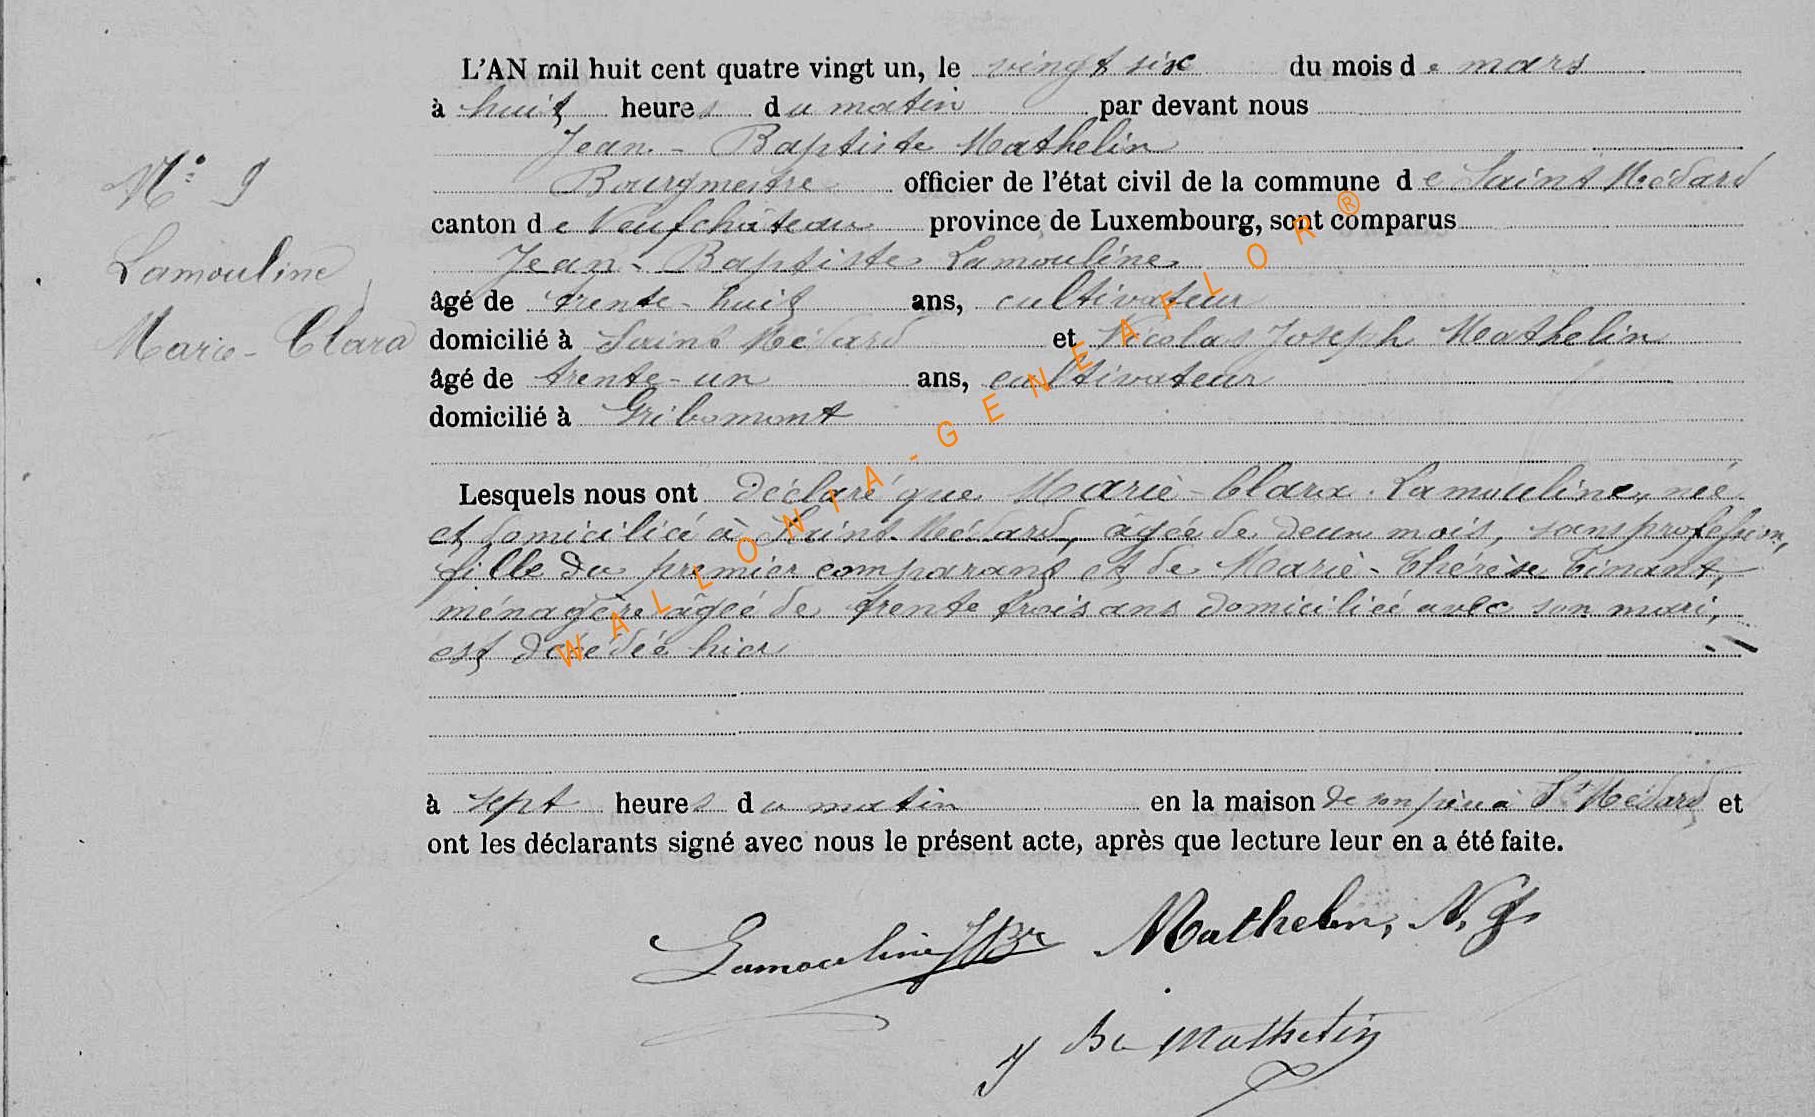 L'AN mil huit cent quatre vingt un, le vingt six du mois de mars
à huit heures du matin par devant nous
Jean-Baptiste Mathelin
Bourgmestre officier de l'état civil de la commune de Saint Médard
canton de Neufchâteau province de Luxembourg, sont comparus
Jean-Baptiste Lamouline
âgé de trente-huit ans, cultivateur
domicilié à Saint Médard et Nicolas Joseph Mathelin
âgé de trente-un ans, cultivateur
domicilié à Gribomont
N° 9
Lamouline,
Marie-Clara
Lesquels nous ont déclaré que Marie-Clara Lamouline, née
et domiciliée à Saint-Médard, âgée de deux mois, sans profession,
fille du premier comparant et de Marie-Thérèse Tinant,
ménagère âgée de trente trois ans domiciliée avec son mari,
est décédée hier
à sept heures du matin en la maison de son père à St Médard et
ont les déclarants signé avec nous le présent acte, après que lecture leur en a été faite.
Lamouline JBte Mathelin, N, J
J Bte Mathelin
WALLONIA-GENEAFLOR®